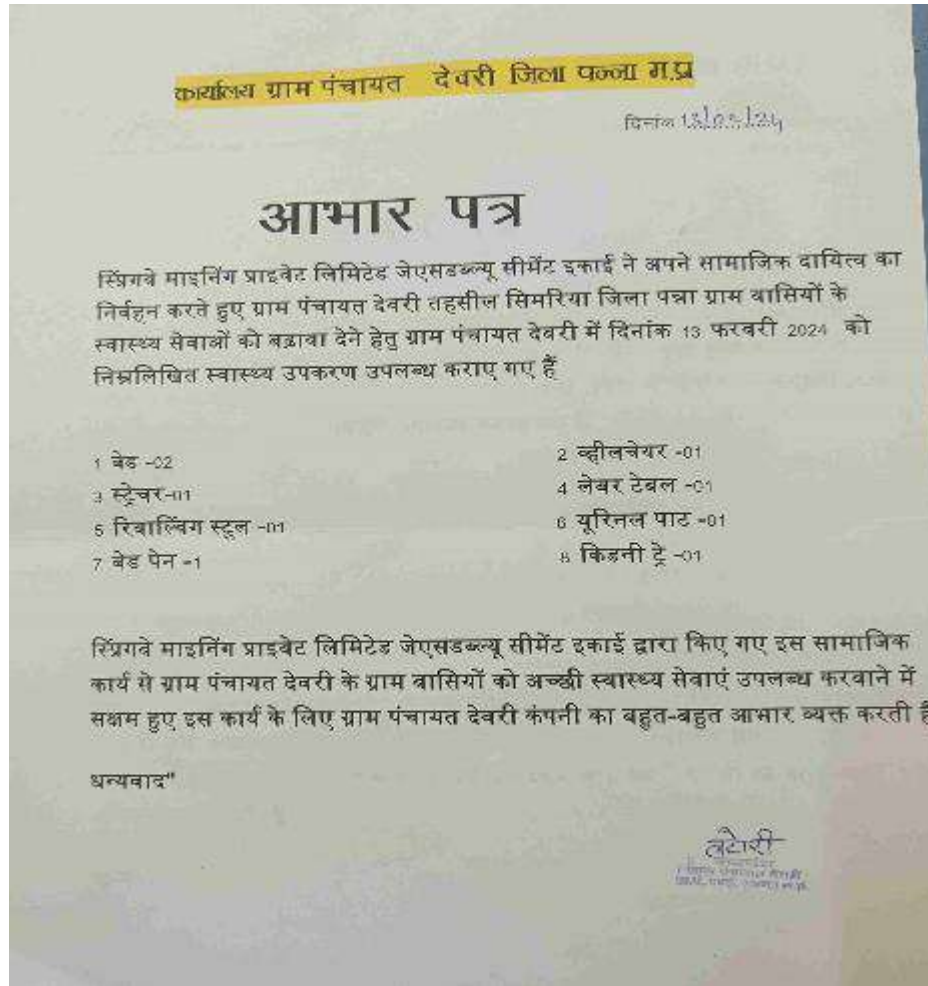 कार्यालय ग्राम पंचायत देवरी जिला पन्ना म.प्र
दिनांक 13/02/24
आभार पत्र
स्प्रिंगवे माइनिंग प्राइवेट लिमिटेड जेएसडब्ल्यू सीमेंट इकाई ने अपने सामाजिक दायित्व का
निर्वहन करते हुए ग्राम पंचायत देवरी तहसील सिमरिया जिला पन्ना ग्राम वासियों के
स्वास्थ्य सेवाओं को बढ़ावा देने हेतु ग्राम पंचायत देवरी में दिनांक 13 फरवरी 2024 को
निम्नलिखित स्वास्थ्य उपकरण उपलब्ध कराए गए हैं
1 बेड -02 2 व्हीलचेयर -01
3 स्ट्रेचर-01 4 लेबर टेबल -01
5 रिवाल्विंग स्टूल -01 6 यूरिनल पाट -01
7 बेड पेन -1 8 किडनी ट्रे -01
स्प्रिंगवे माइनिंग प्राइवेट लिमिटेड जेएसडब्ल्यू सीमेंट इकाई द्वारा किए गए इस सामाजिक
कार्य से ग्राम पंचायत देवरी के ग्राम वासियों को अच्छी स्वास्थ्य सेवाएं उपलब्ध करवाने में
सक्षम हुए इस कार्य के लिए ग्राम पंचायत देवरी कंपनी का बहुत-बहुत आभार व्यक्त करती है
धन्यवाद"